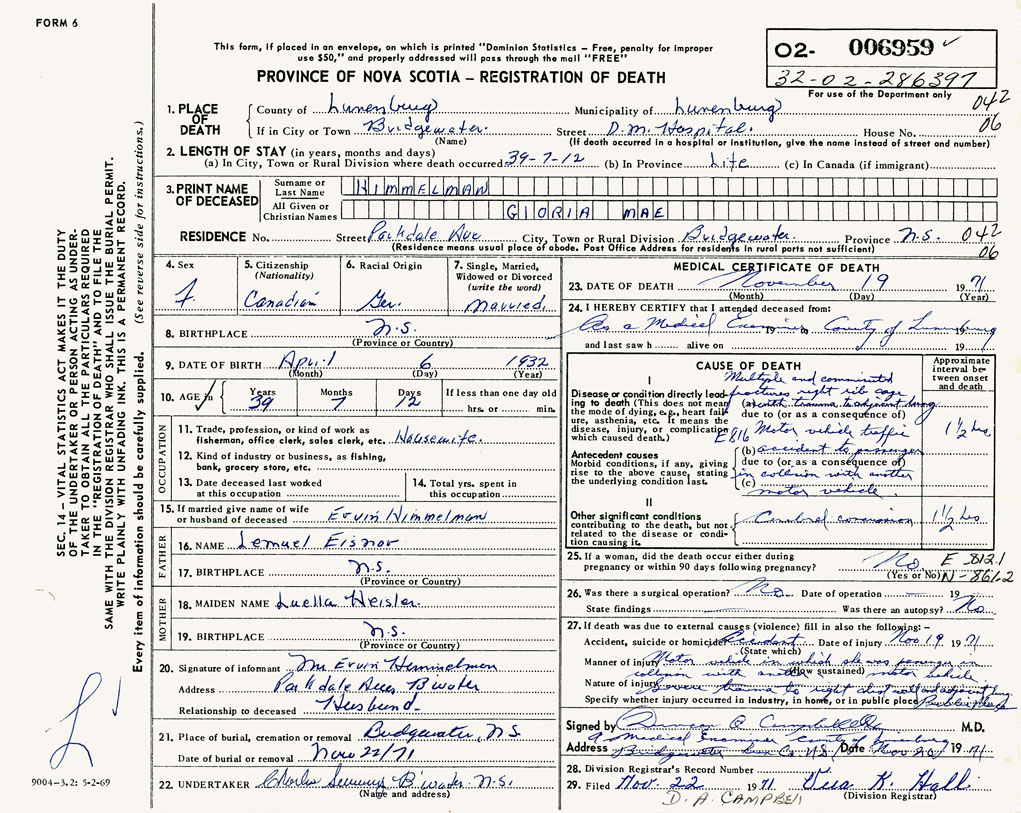 FORM 6
This form, if placed in an envelope, on which is printed "Dominion Statistics – Free, penalty for improper
use $50," and properly addressed will pass through the mail "FREE"
PROVINCE OF NOVA SCOTIA – REGISTRATION OF DEATH
02- 006959
32-02-286397
For use of the Department only
042
06
1. PLACE OF DEATH
County of Lunenburg Municipality of Lunenburg
If in City or Town Bridgewater. Street D.M. Hospital. House No.
(Name) (If death occurred in a hospital or institution, give the name instead of street and number)
2. LENGTH OF STAY (in years, months and days)
(a) In City, Town or Rural Division where death occurred 39-7-12 (b) In Province Life (c) In Canada (if immigrant)
3. PRINT NAME OF DECEASED
Surname or Last Name HIMMELMAN
All Given or Christian Names GlORIA MAE
RESIDENCE No. Street Parkdale Ave City, Town or Rural Division Bridgewater Province N.S. 042
(Residence means usual place of abode. Post Office Address for residents in rural parts not sufficient) 06
4. Sex
F.
5. Citizenship (Nationality)
Canadian
6. Racial Origin
Ger.
7. Single, Married, Widowed or Divorced (write the word)
Married.
8. BIRTHPLACE N.S.
(Province or Country)
9. DATE OF BIRTH April 6 1932
(Month) (Day) (Year)
10. AGE Years Months Days If less than one day
39 7 12 hrs. or min.
OCCUPATION
11. Trade, profession, or kind of work as
fisherman, office clerk, sales clerk, etc. Housewife.
12. Kind of industry or business, as fishing,
bank, grocery store, etc.
13. Date deceased last worked
at this occupation
14. Total yrs. spent in
this occupation
15. If married give name of wife
or husband of deceased Ervin Himmelman
FATHER
16. NAME Lemuel Eisnor
17. BIRTHPLACE N.S.
(Province or Country)
MOTHER
18. MAIDEN NAME Luella Heisler.
19. BIRTHPLACE N.S.
(Province or Country)
20. Signature of informant Mr Ervin Himmelman
Address Parkdale Ave. B'water
Relationship to deceased Husband.
21. Place of burial, cremation or removal Bridgewater, N.S.
Date of burial or removal Nov 22/71
22. UNDERTAKER B'water N.S.
(Name and address)
MEDICAL CERTIFICATE OF DEATH
23. DATE OF DEATH November 19 1971
(Month) (Day) (Year)
24. I HEREBY CERTIFY that I attended deceased from:
As a Medical Examiner, County of Lunenburg 19
and last saw h alive on 19
CAUSE OF DEATH
Approximate interval between onset and death
I
Disease or condition directly leading to death (This does not mean
the mode of dying, e.g., heart failure, asthenia, etc. It means the
disease, injury, or complication
which caused death.)
Multiple and comminuted
fractures right rib cage
(a) with trauma to adjacent lung
due to (or as a consequence of)
E 816 Motor vehicle traffic 1½ hrs
Antecedent causes
Morbid conditions, if any, giving
rise to the above cause, stating
the underlying condition last.
(b) accident to passenger
due to (or as a consequence of)
in collision with another
(c) motor vehicle.
II
Other significant conditions
contributing to the death, but not
related to the disease or condition causing it.
Cerebral concussion 1½ hrs
25. If a woman, did the death occur either during
pregnancy or within 90 days following pregnancy? No
(Yes or No)
E 812.1
N-861.2
26. Was there a surgical operation? No. Date of operation 19
State findings Was there an autopsy? No
27. If death was due to external causes (violence) fill in also the following: –
Accident, suicide or homicide? Accident Date of injury Nov 19 1971
(State which)
Manner of injury Motor vehicle in which she was passenger in
collision with another motor vehicle
(How sustained)
Nature of injury Severe trauma to right chest and adjacent lung
Specify whether injury occurred in industry, in home, or in public place Public place
Signed by Duncan A. Campbell M.D.
A Medical Examiner County of Lunenburg
Address Bridgewater Lun Co. N.S. Date Nov 20 1971
28. Division Registrar's Record Number
29. Filed Nov. 22 1971 K. Hall
(Division Registrar)
D. A. CAMPBEll
SEC. 14 – VITAL STATISTICS ACT MAKES IT THE DUTY
OF THE UNDERTAKER OR PERSON ACTING AS UNDERTAKER TO OBTAIN ALL THE PARTICULARS REQUIRED
IN THE "REGISTRATION OF DEATH" AND TO FILE THE
SAME WITH THE DIVISION REGISTRAR WHO SHALL ISSUE THE BURIAL PERMIT.
WRITE PLAINLY WITH UNFADING INK. THIS IS A PERMANENT RECORD.
Every item of information should be carefully supplied. (See reverse side for instructions.)
9004-3.2: 5-2-69